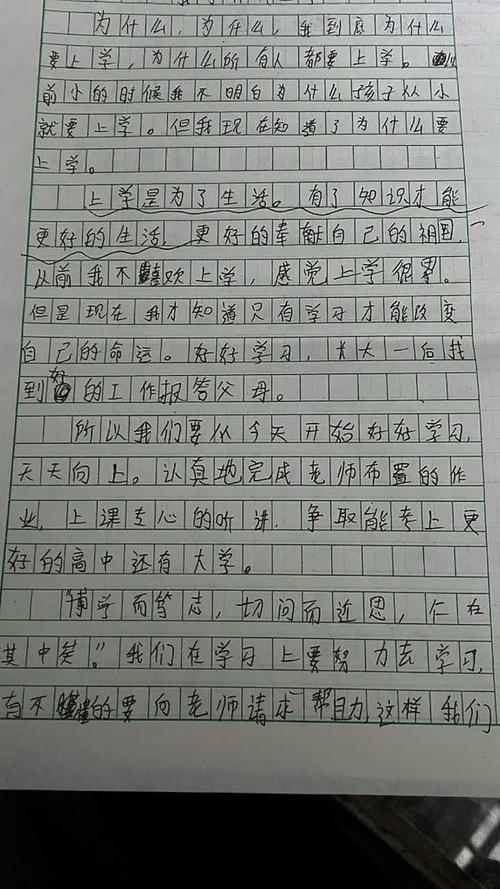 为什么,为什么,我到底为什么
要上学,为什么所有人都要上学。以
前小的时候我不明白为什么孩子从小
就要上学。但我现在知道了为什么要
上学。
上学是为了生活。有了知识才能
更好的生活,更好的奉献自己的祖国,
从前我不喜欢上学,感觉上学很累。
但是现在我才知道只有学习才能改变
自己的命运。好好学习,长大一后找
到好的工作报答父母。
所以我们要从今天开始好好学习,
天天向上。认真地完成老师布置的作
业,上课专心的听讲,争取能考上更
好的高中还有大学。
“博学而笃志,切问而近思,仁在
其中矣。”我们在学习上要努力去学习,
有不懂的要向老师请求帮助,这样我们